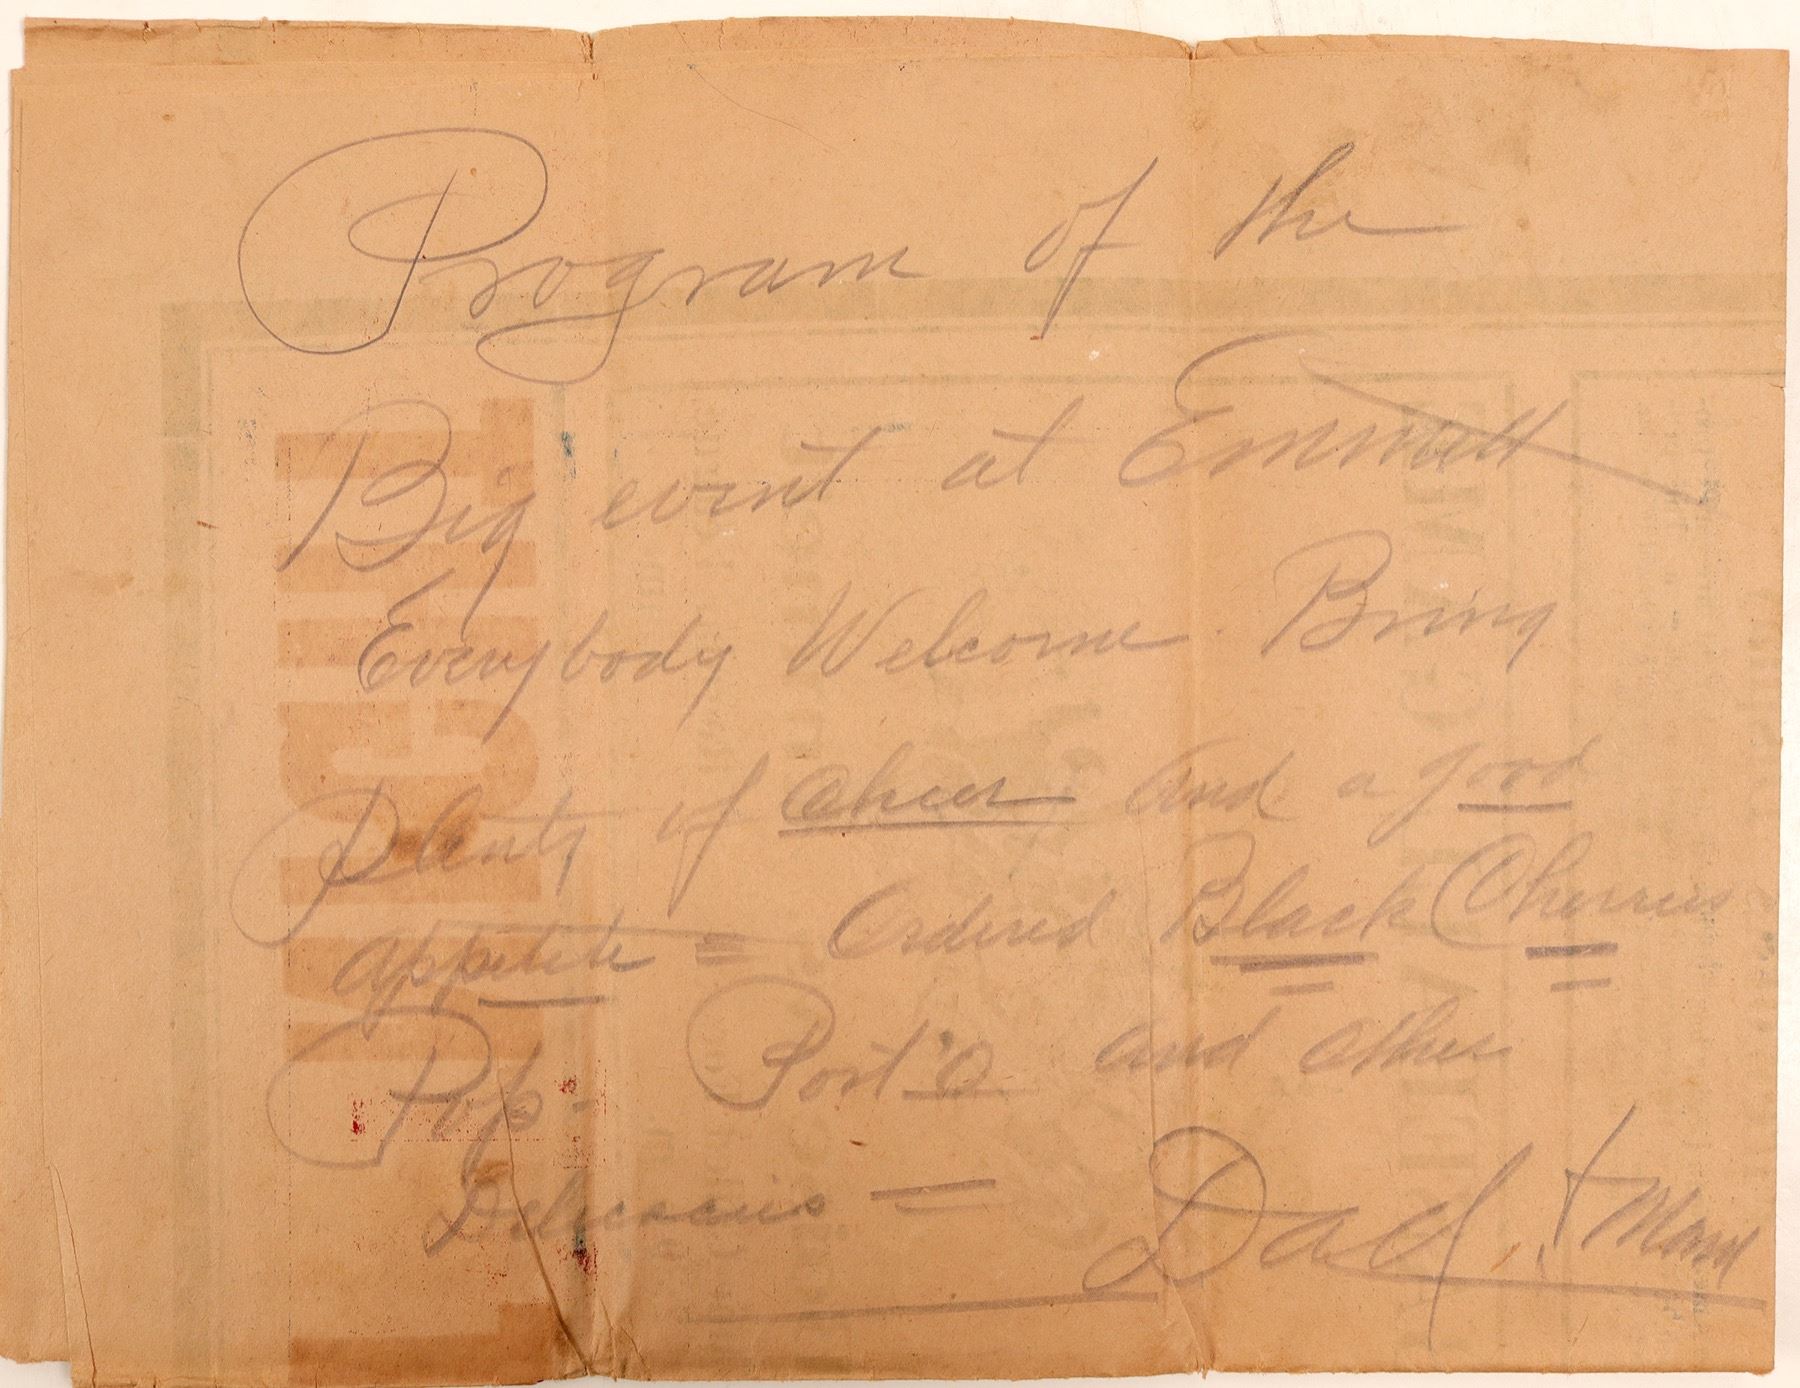 Program of the
Big event at Emmett
Everybody Welcome. Bring
Plenty of cheer and a good
appetite = Ordered Black Cherries
Pop - Port'O and other
Delicacies =
Dad. +